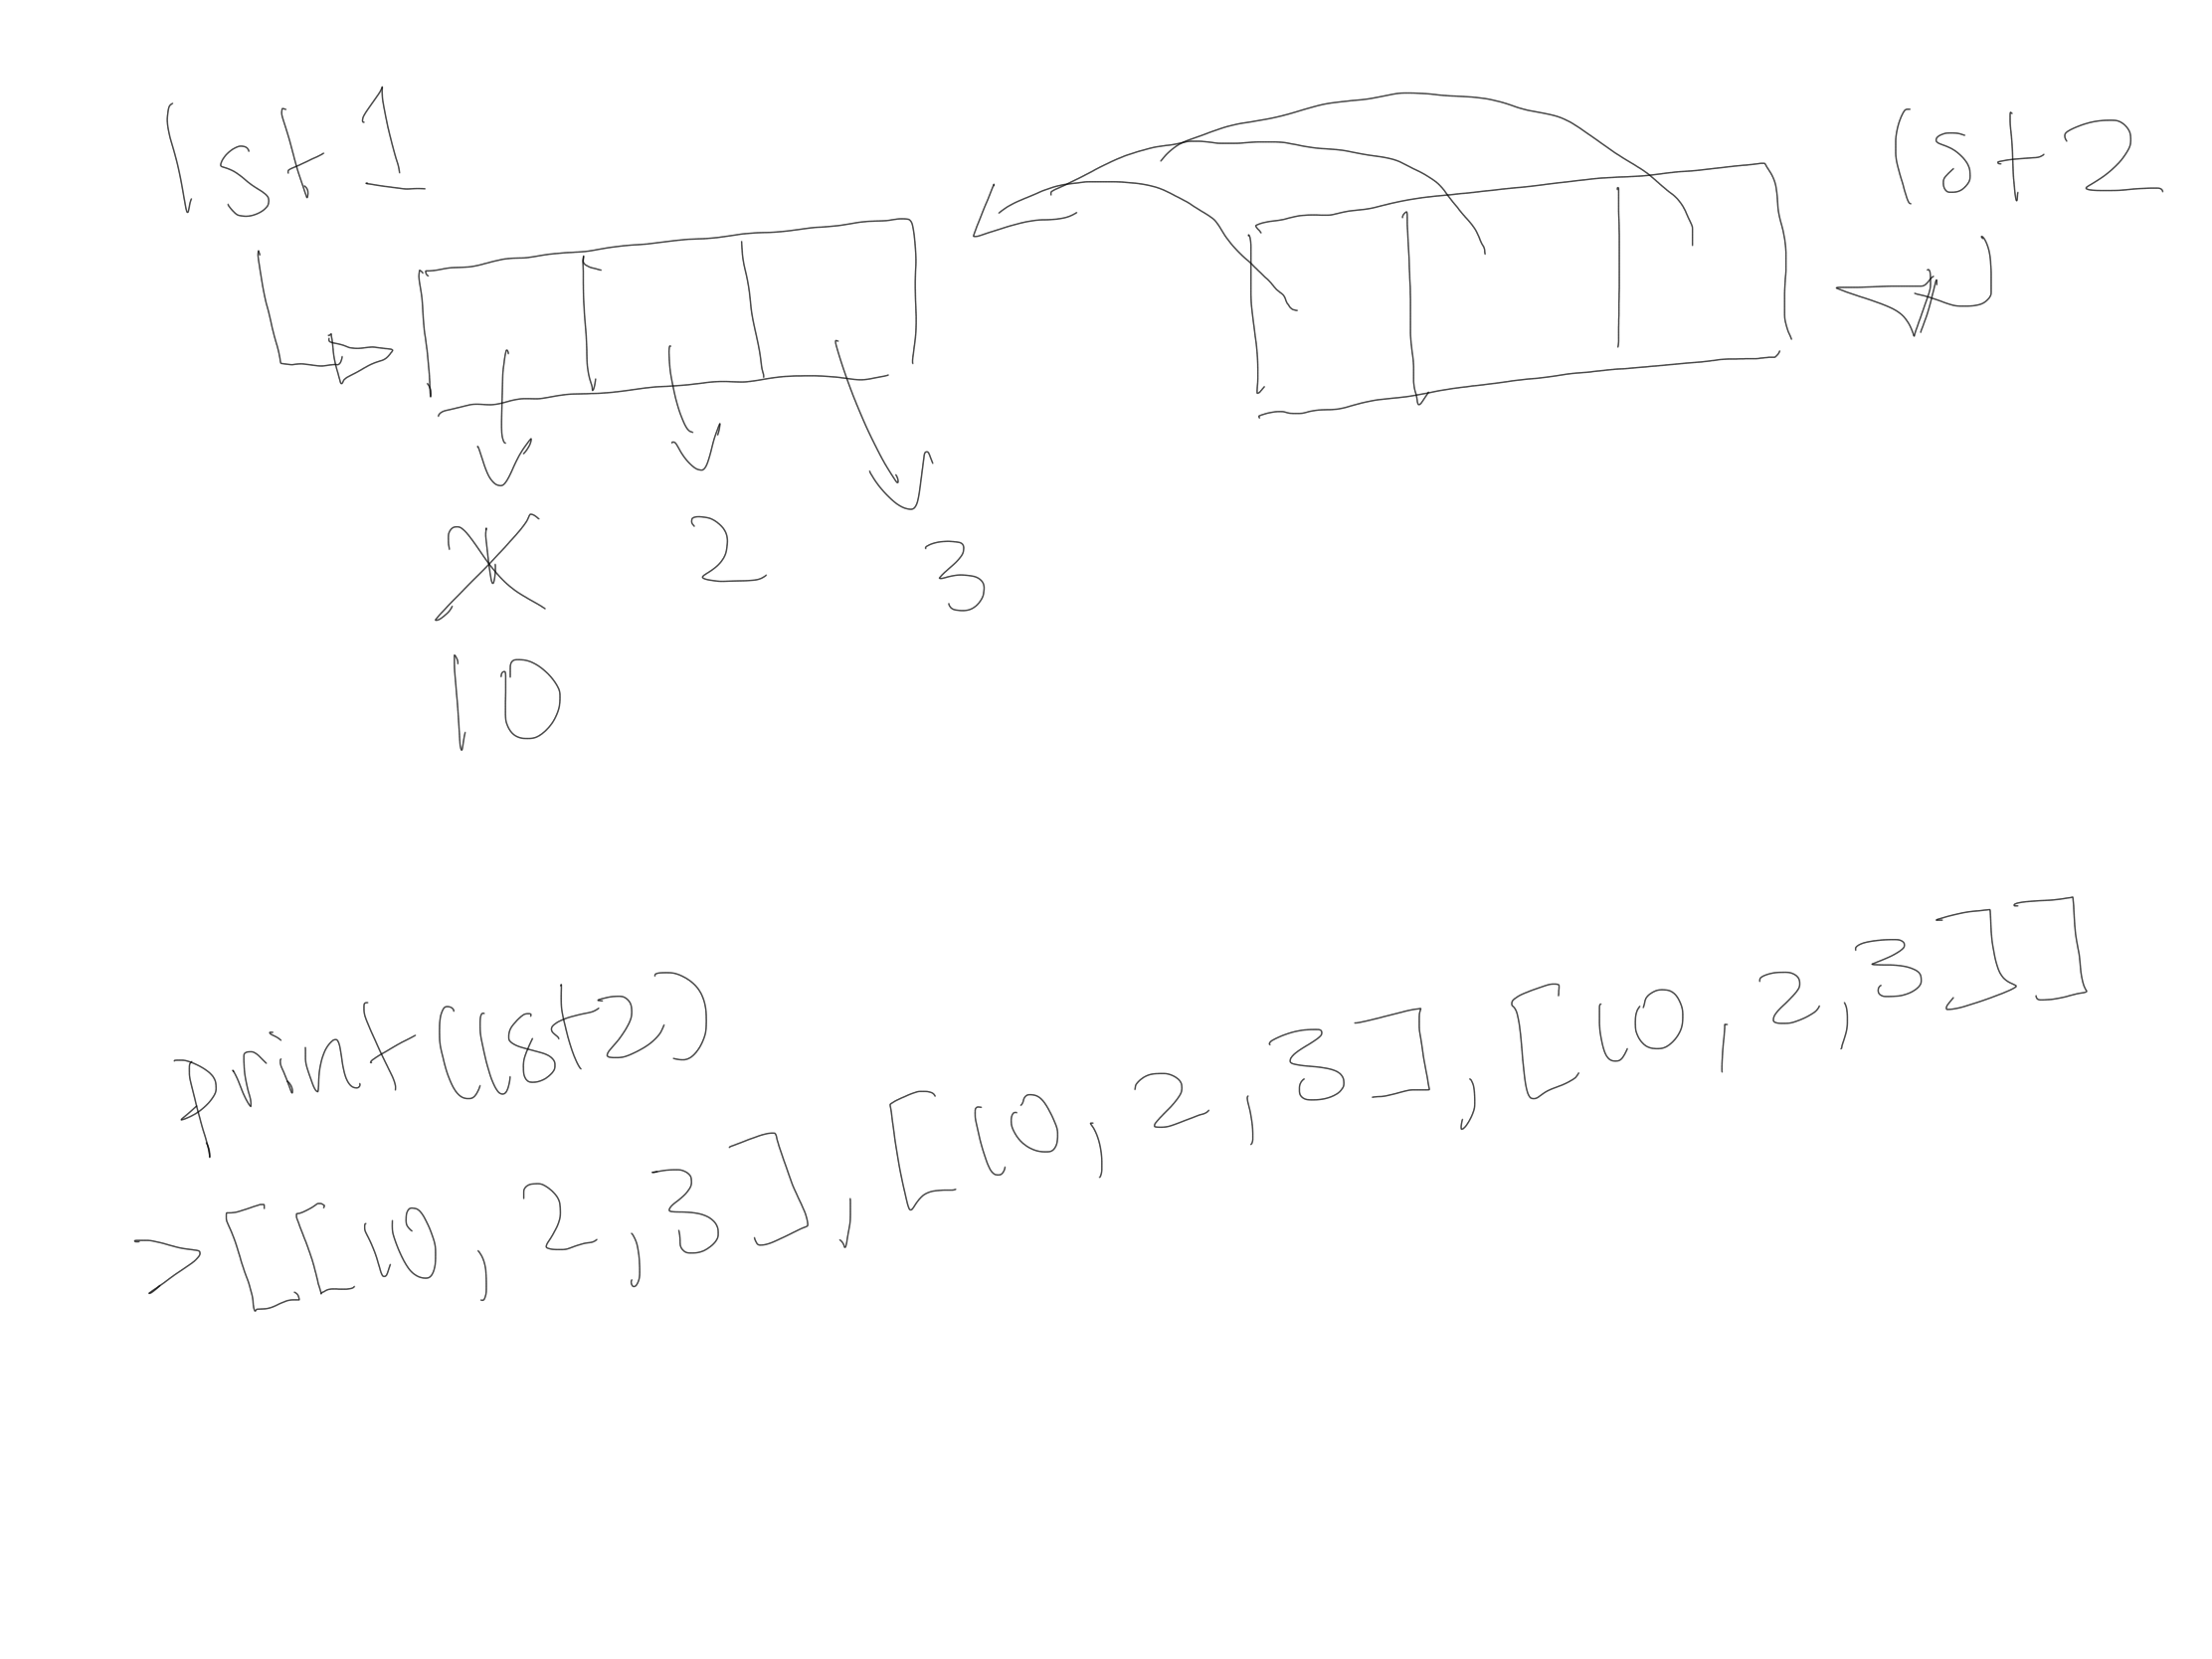 lst1
lst2
1 2 3
10
print(lst2)
> [[10, 2, 3], [10, 2, 3], [10, 2, 3]]